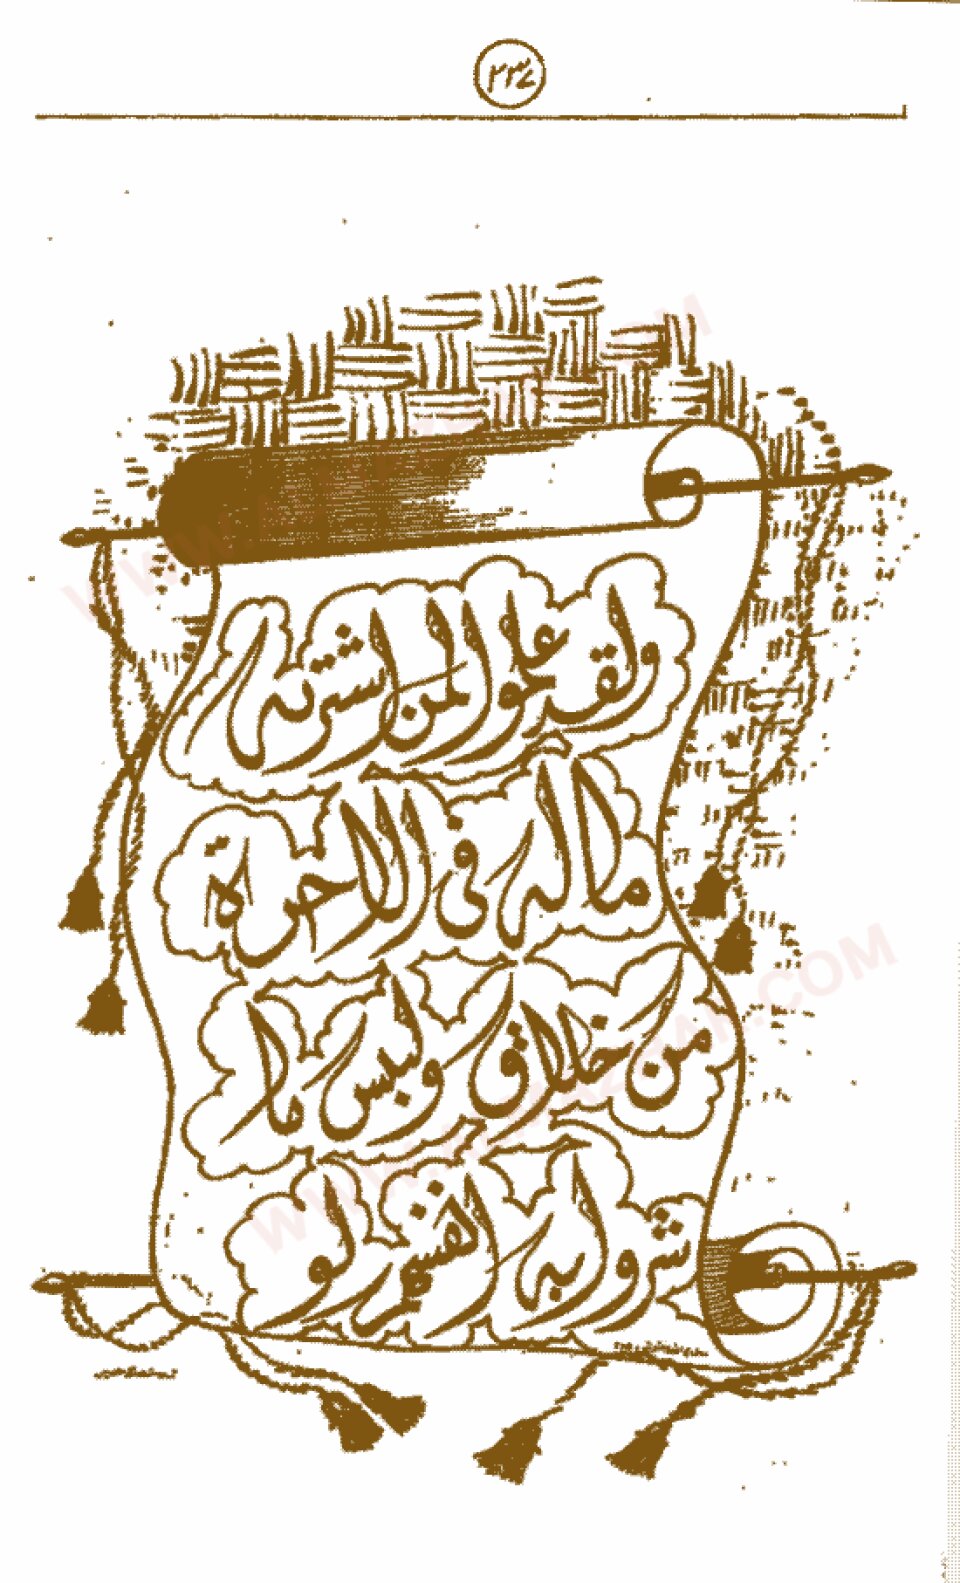 ۲۳۴
ولقد علموا لمن اشتريه
ماله فى الاخرة
من خلاق ولبئس ما
شروا به انفسهم لو